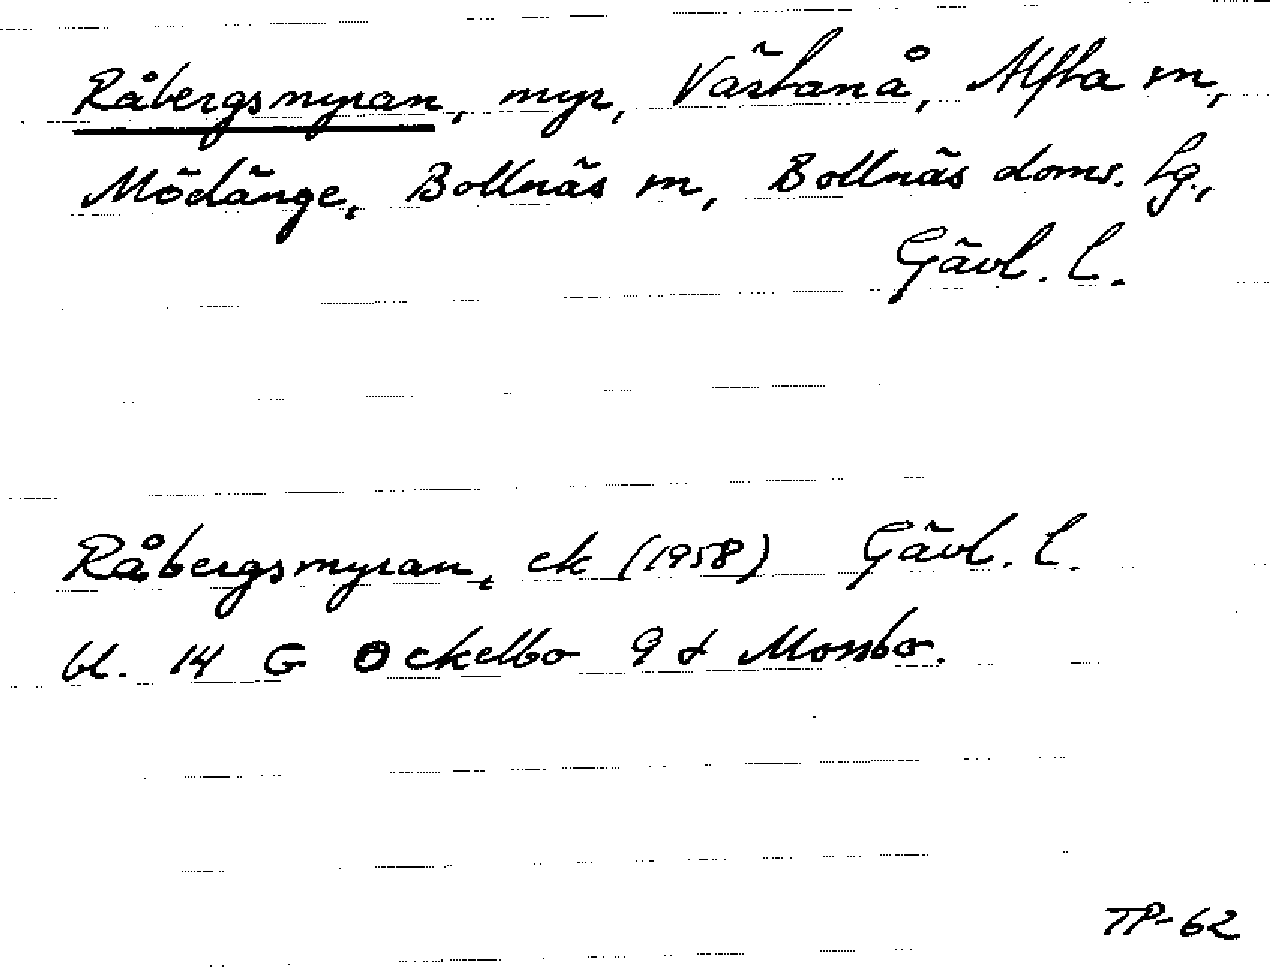 Råbergsmyran, myr, Västanå, Alfta sn,
Mödänge, Bollnäs sn, Bollnäs doms. lg,
Gävl. l.
Råbergsmyran, ek (1958) Gävl. l.
bl. 14 G Ockelbo 9 d Mossbo.
TP-62